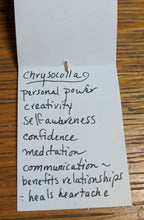 Chrysocolla
personal power
creativity
self-awareness
confidence
meditation
communication ~
benefits relationships
- heals heartache